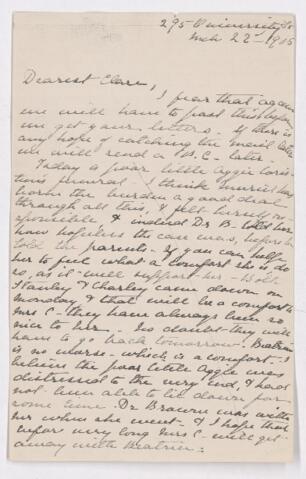 295 University St
Mch 22 - 1905
Dearest Clare,
I fear that again
we will have to post this before
we get your letters. If there is
any hope of catching the mail later
we will send a P.C. later.
Today is poor little Aggie's
funeral. I think Muriel has
borne the burden a good deal
through all this, & felt herself re-
sponsible & indeed Dr B. told her
how hopeless the case was, before he
told the parents. If you can help
her to feel what a comfort she is do
so, as it will support her. Both
Stanley & Charley came down on
Monday & that will be a comfort to
Mrs C - they have always been so
nice to her. No doubt they will
have to go back tomorrow. Beatrice
is no worse - which is a comfort. I
believe the poor little Aggie was
distressed to the very end, & had
not been able to lie down for
some time. Dr Browne was with
her when she went. & I hope that
before very long Mrs C - will get
away with Beatrice.